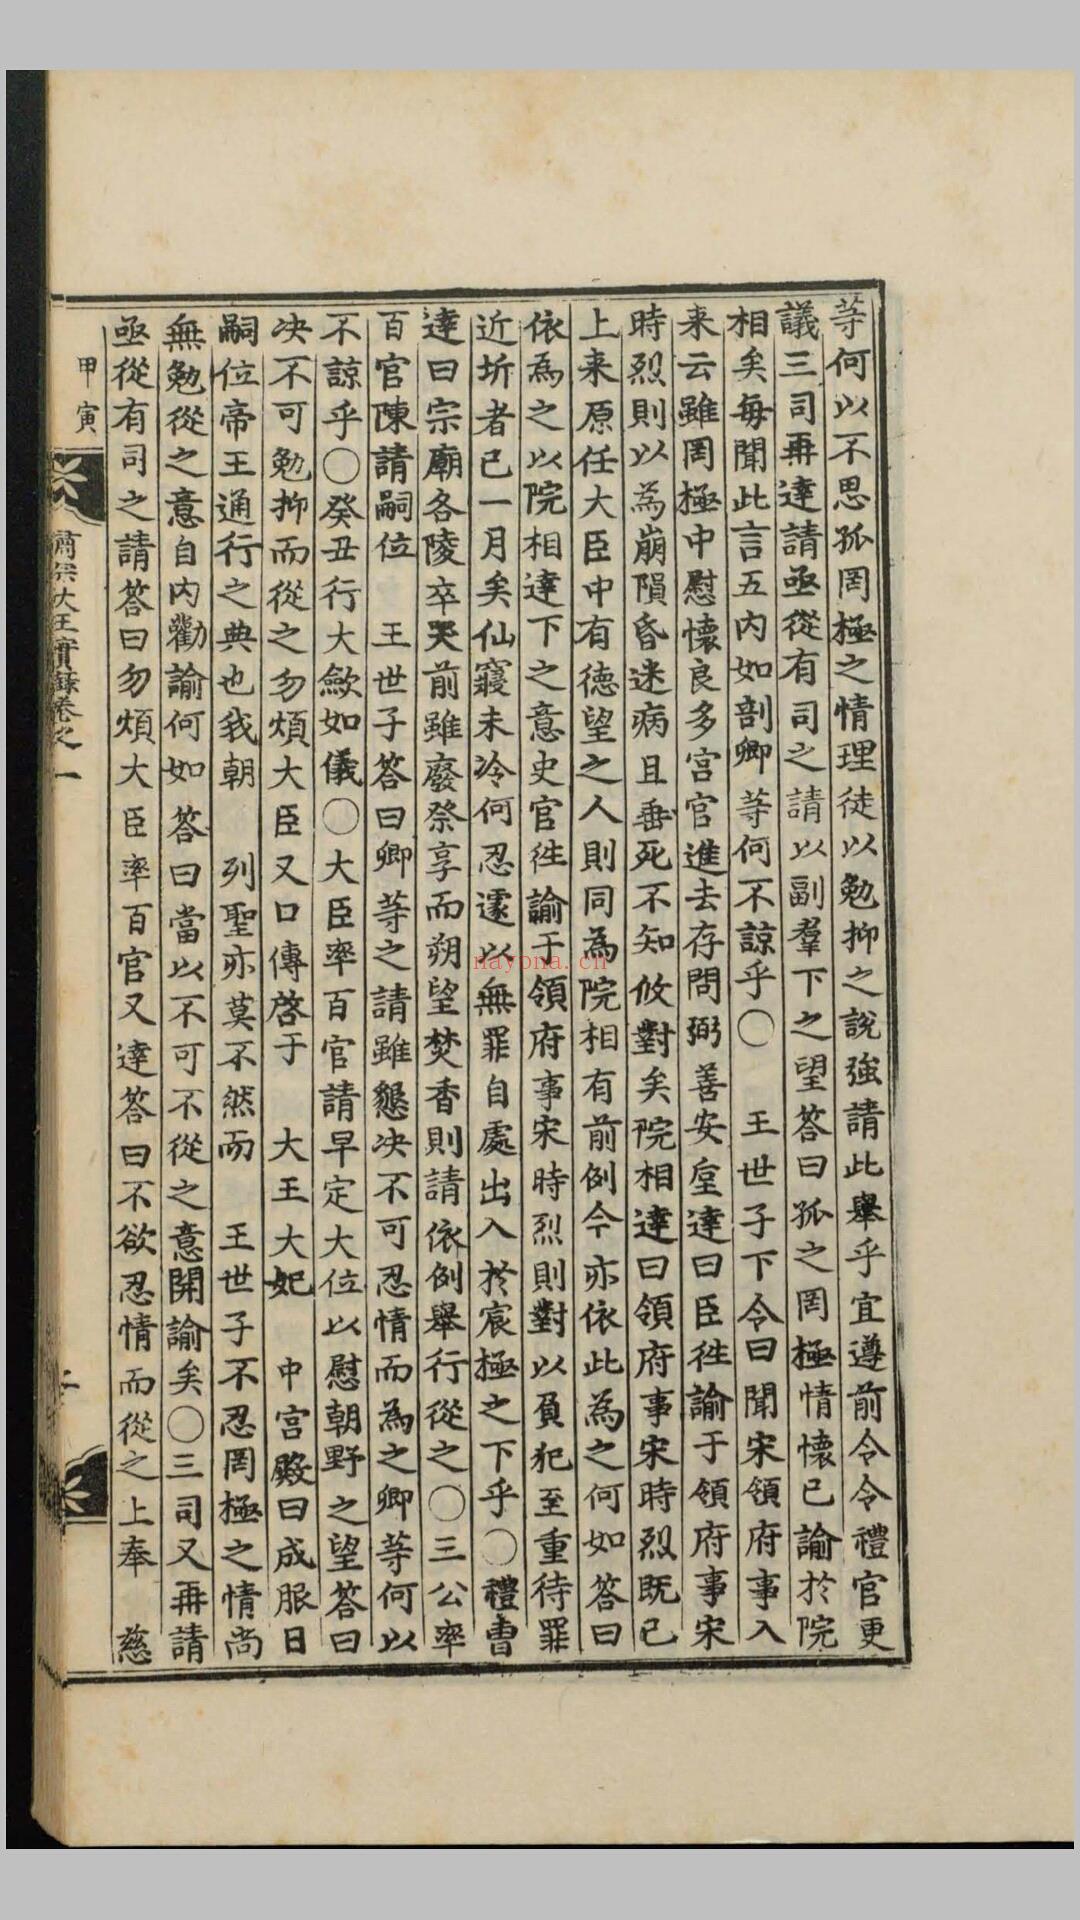 等何以不思孤罔極之情理徒以勉抑之說強請此擧乎宜遵前令令禮官更
議三司再達請亟從有司之請以副羣下之望答曰孤之罔極情懷已諭於院
相矣每聞此言五内如剖卿等何不諒乎○　王世子下令曰聞宋領府事入
来云雖罔極中慰懷良多宮官進去存問弼善安垕達曰臣徃諭于領府事宋
時烈則以為崩隕昏迷病且垂死不知攸對矣院相達曰領府事宋時烈既已
上来原任大臣中有德望之人則同為院相有前例今亦依此為之何如答曰
依為之以院相達下之意史官徃諭于領府事宋時烈則對以負犯至重待罪
近圻者已一月矣仙寢未冷何忍遽以無罪自處出入於宸極之下乎○禮曹
達曰宗廟各陵卒哭前雖廢祭享而朔望焚香則請依例擧行從之○三公率
百官陳請嗣位　王世子答曰卿等之請雖懇决不可忍情而為之卿等何以
不諒乎○癸丑行大歛如儀○大臣率百官請早定大位以慰朝野之望答曰
决不可勉抑而從之勿煩大臣又口傳啓于　大王大妃　中宮殿曰成服日
嗣位帝王通行之典也我朝　列聖亦莫不然而　王世子不忍罔極之情尚
無勉從之意自内勸諭何如答曰當以不可不從之意開諭矣○三司又再請
亟從有司之請答曰勿煩大臣率百官又達答曰不欲忍情而從之上奉　慈
甲寅
肅宗大王實錄卷之一
nayona.cn